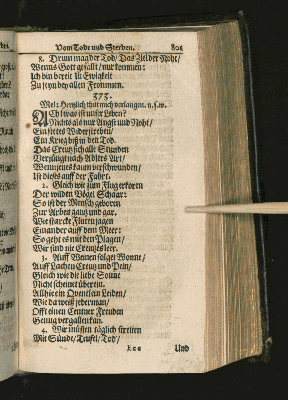 Vom Tode und Sterben. 801
8. Drum mag der Tod/ Das Ziel der Noht/
Wenns Gott gefällt/ nur kommen:
Ich bin bereit zu Ewigkeit
Zu seyn bey allen Frommen.
373.
Mel: Hertzlich thut mich verlangen. u.s.w.
ACh! was ist unser Leben?
Nichts als nur Angst und Noht/
Ein stetes Widerstreben/
Ein Krieg biß in den Tod.
Das Creutz sich alle Stunden
Verjüngt nach Adlers Art/
Wenn jenes kaum verschwunden/
Ist dieses auff der Fahrt.
2. Gleich wie zum Flug erkoren
Der wilden Vögel Schaar:
So ist der Mensch geboren
Zur Arbeit gantz und gar.
Wie starcke Fluten jagen
Einander auff dem Meer:
So geht es mit den Plagen/
Wir sind nie Creutzes leer.
3. Auff Weinen folget Wonne/
Auff Lachen Creutz und Pein/
Gleich wie die liebe Sonne
Nicht scheinet überein.
Allhie ein Quentlein Leiden/
Wie da weiß jederman/
Offt einen Centner Freuden
Genug vergällen kan.
4. Wir müssen täglich streiten
Mit Sünde/ Teufel/ Tod/
Eee Und